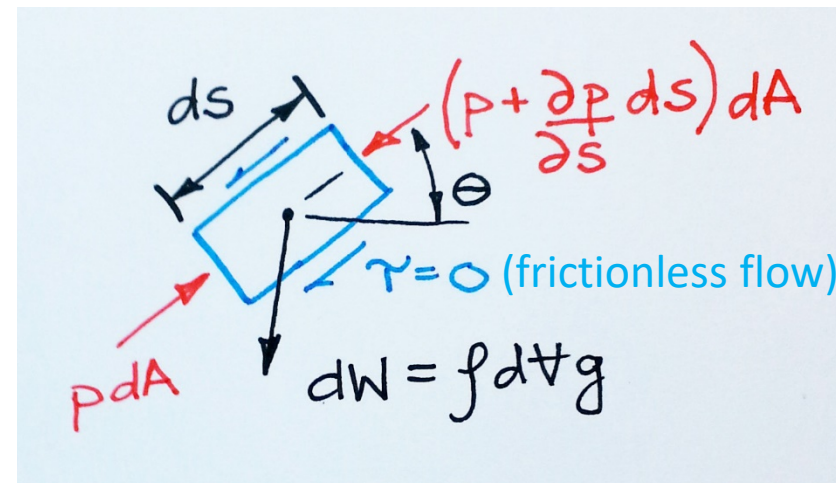 ds
(p + ∂p/∂s ds) dA
θ
τ = 0 (frictionless flow)
pdA
dW = ρdⱯg